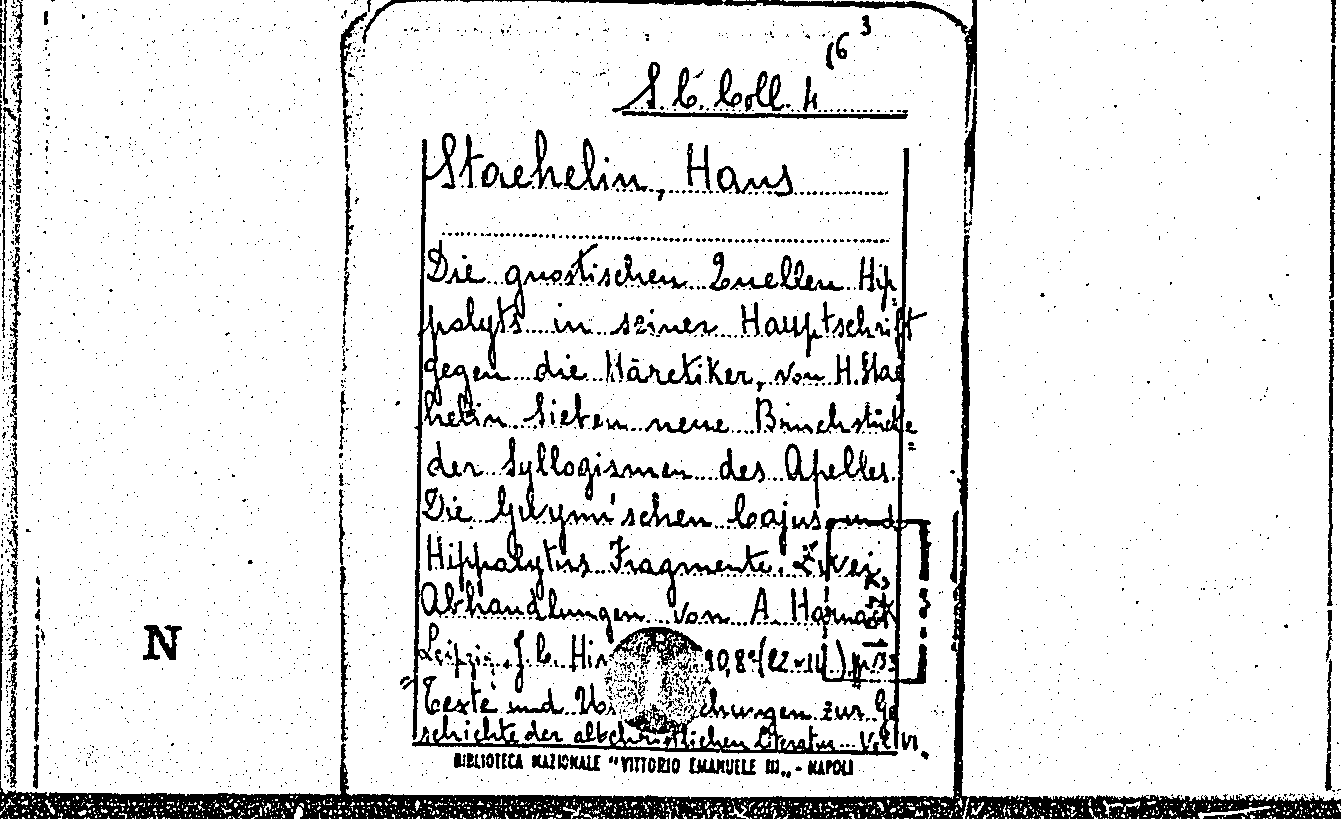 (6 3
S. C. Coll. 4
Staehelin, Hans
Die gnostischen Quellen Hip
polyts in seiner Hauptschrift
gegen die Häretiker, von H. Stae
helin Sieben neue Bruchstücke
der Syllogismen des Apelles.
Die Gwynn'schen Cajus und
Hippolytus Fragmente. Zwei
Abhandlungen von A. Harnack
Leipzig, J. C. Hin 90, 8° (22 cm)
Texte und chungen zur Ge
schichte der altchristlichen Literatur. Vol. VI.
BIBLIOTECA NAZIONALE "VITTORIO EMANUELE III„ - NAPOLI
N